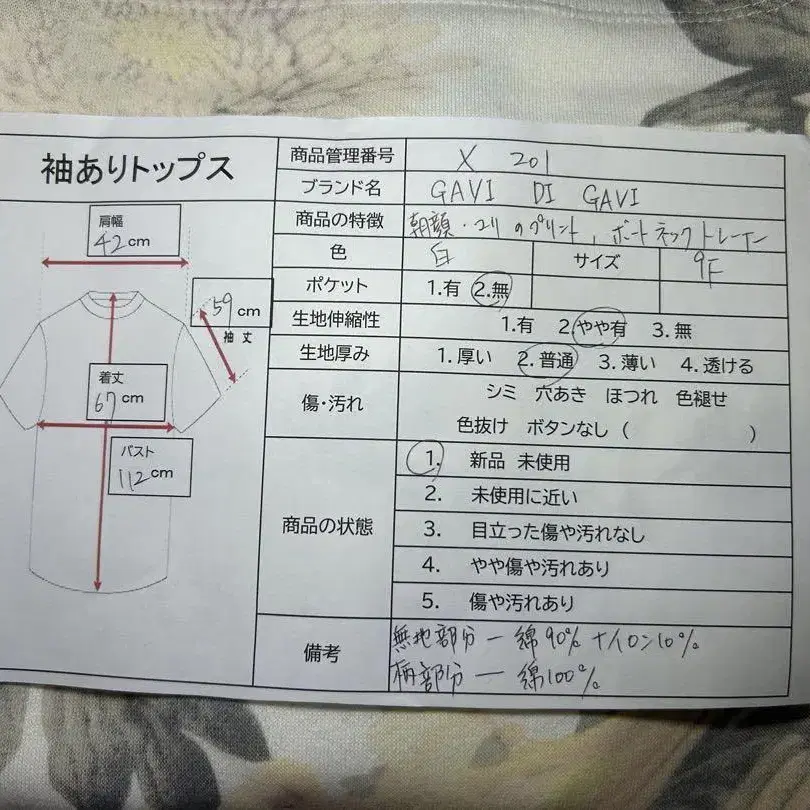 袖ありトップス
商品管理番号 X 201
ブランド名 GAVI DI GAVI
商品の特徴 朝顔・ユリのプリント、ボートネックトレーナー
色 白 サイズ 9F
ポケット 1.有 2.無
生地伸縮性 1.有 2.やや有 3.無
生地厚み 1.厚い 2.普通 3.薄い 4.透ける
傷・汚れ シミ 穴あき ほつれ 色褪せ
色抜け ボタンなし ( )
商品の状態
1. 新品 未使用
2. 未使用に近い
3. 目立った傷や汚れなし
4. やや傷や汚れあり
5. 傷や汚れあり
備考 無地部分ー綿90% ナイロン10%
柄部分ー綿100%
肩幅
42cm
59cm
袖丈
着丈
67cm
バスト
112cm